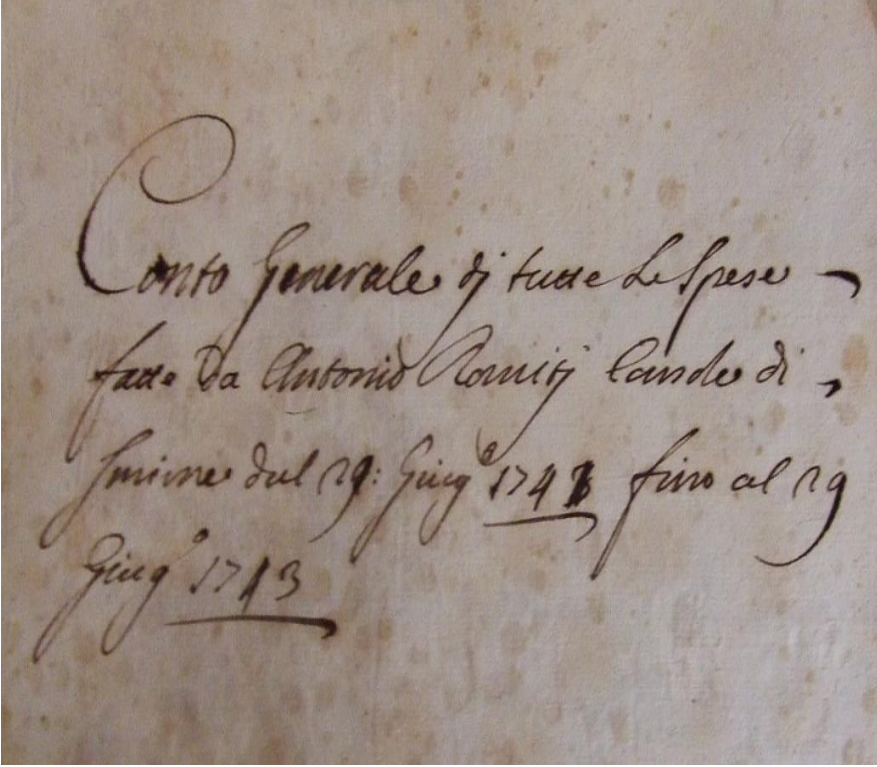 Conto Generale dj tutte Le Spese
fatte da Antonio Romitj Cande di
dal 29: Giugº fino al 29
Giugº 1743